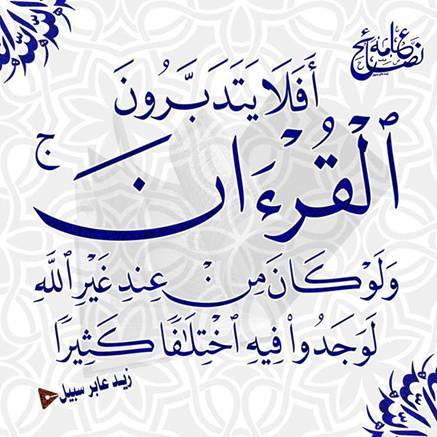 نصائح عامة
أَفَلَا يَتَدَبَّرُونَ
ٱلْقُرْءَانَ ۚ
وَلَوْ كَانَ مِنْ عِندِ غَيْرِ ٱللَّهِ
لَوَجَدُوا۟ فِيهِ ٱخْتِلَٰفًا كَثِيرًا
زيد عابر سبيل